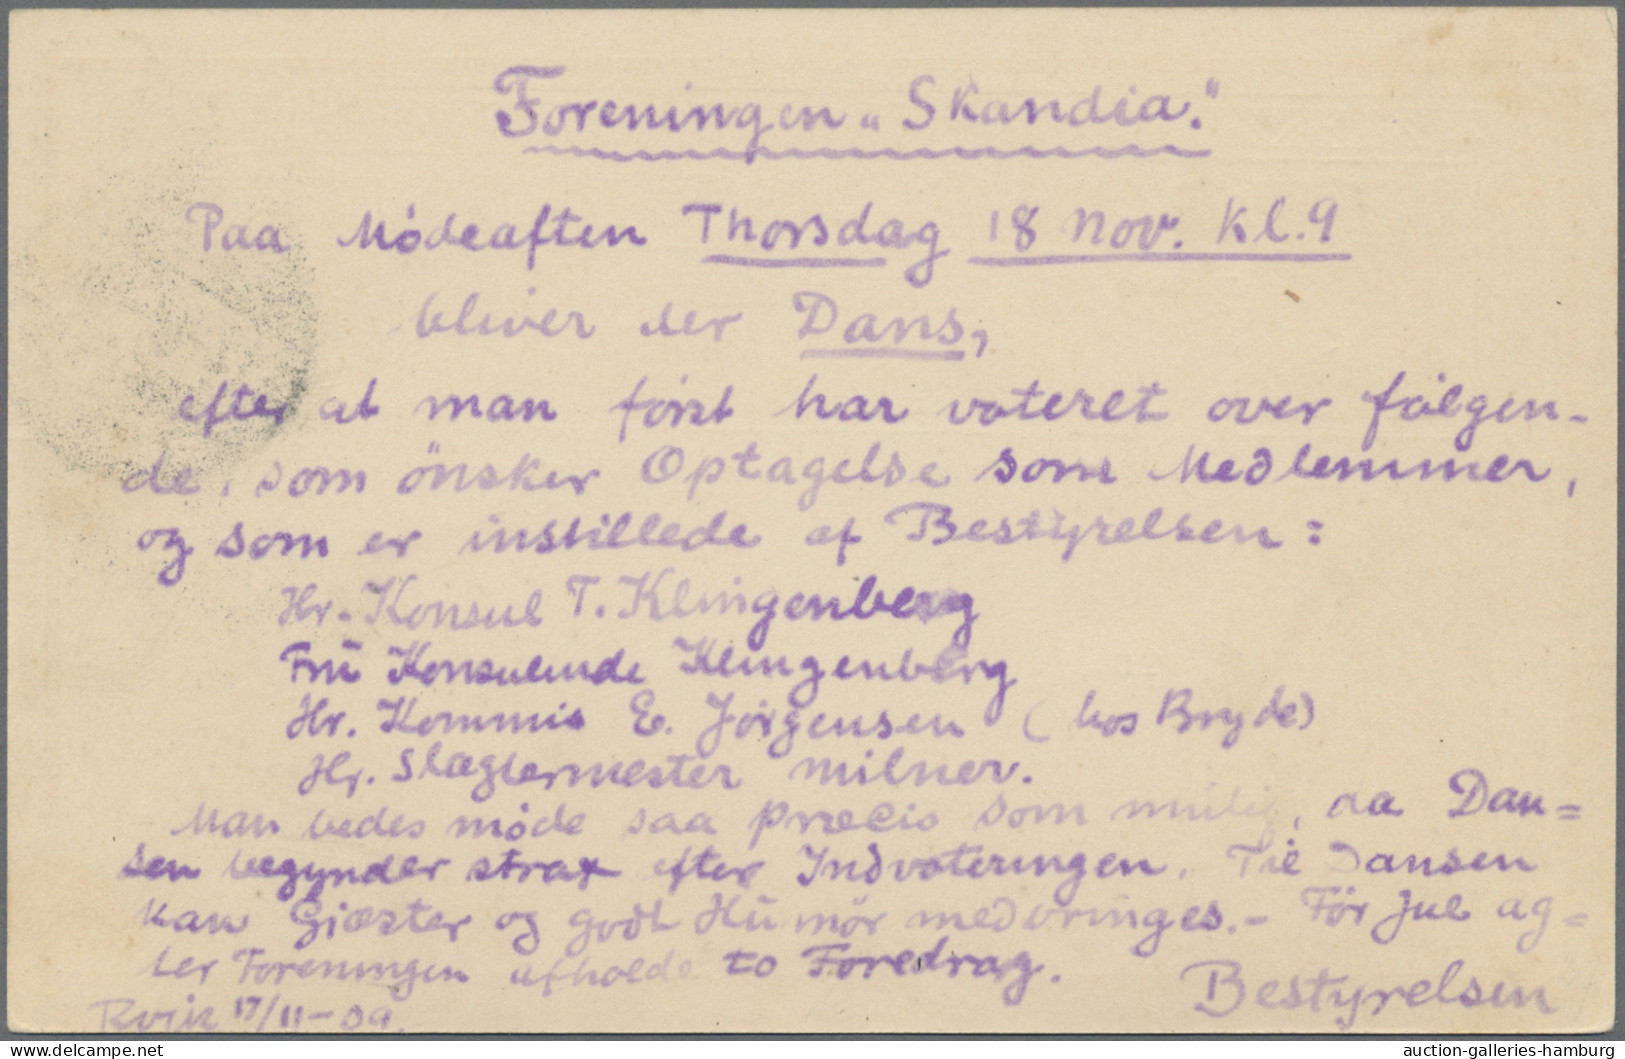 Foreningen „Skandia."
Paa Mödeaften Thorsdag 18 Nov. Kl. 9
bliver der Dans,
efter at man först har voteret over følgen-
de, som önsker Optagelse som Medlemmer,
og som er instillede af Bestyrelsen:
Hr. Konsul T. Klingenberg
Frü Konsulinde Klingenberg
Hr. Kommis E. Jörgensen (hos Bryde)
Hr. Slagtermester Milner.
Man bedes møde saa præcis som , da Dan=
sen begynder strax efter Indvoteringen. Til Dansen
kan Giæster og godt Hümör medbringes. - För Jul ag=
ter Foreningen afholde to Foredrag.
Bestyrelsen
Rvik 17/11-09.
auction-galleries-hamburg